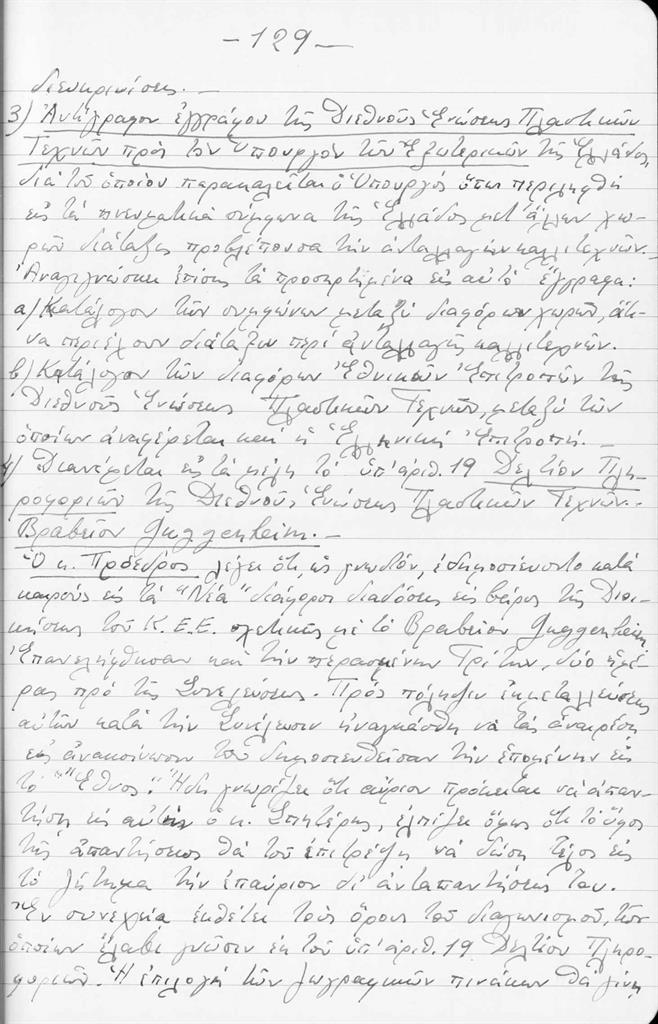 - 129 -
διευκρινίσεις. -
3) Ἀντίγραφον ἐγγράφου τῆς Διεθνοῦς Ἑνώσεως Πλαστικῶν
Τεχνῶν πρὸς τὸν Ὑπουργὸν τῶν Ἐξωτερικῶν τῆς Ἑλλάδος,
διὰ τοῦ ὁποίου παρακαλεῖται ὁ Ὑπουργὸς ὅπως περιληφθῆ
εἰς τὰ πνευματικὰ σύμφωνα τῆς Ἑλλάδος μετ' ἄλλων χω-
ρῶν διάταξις προβλέπουσα τὴν ἀνταλλαγὴν καλλιτεχνῶν. -
Ἀναγιγνώσκει ἐπίσης τὰ προσηρτημένα εἰς αὐτὸ ἔγγραφα:
α) Κατάλογον τῶν συμφώνων μεταξὺ διαφόρων χωρῶν, ἅτι-
να περιέχουν διάταξιν περὶ ἀνταλλαγῆς καλλιτεχνῶν.
β) Κατάλογον τῶν διαφόρων Ἐθνικῶν Ἐπιτροπῶν τῆς
Διεθνοῦς Ἑνώσεως Πλαστικῶν Τεχνῶν, μεταξὺ τῶν
ὁποίων ἀναφέρεται καὶ ἡ Ἑλληνικὴ Ἐπιτροπή. -
4) Διανέμεται εἰς τὰ μέλη τὸ ὑπ' ἀριθ. 19 Δελτίον Πλη-
ροφοριῶν τῆς Διεθνοῦς Ἑνώσεως Πλαστικῶν Τεχνῶν. -
Βραβεῖον Guggenheim. -
Ὁ κ. Πρόεδρος λέγει ὅτι, ὡς γνωστόν, ἐδημοσιεύοντο κατὰ
καιροὺς εἰς τὰ "Νέα" διάφοροι διαδόσεις εἰς βάρος τῆς Διοι-
κήσεως τοῦ Κ.Ε.Ε. σχετικῶς μὲ τὸ Βραβεῖον Guggenheim.
Ἐπανελήφθησαν καὶ τὴν περασμένην Τρίτην, δύο ἡμέ-
ρας πρὸ τῆς Συνελεύσεως. Πρὸς πόληψιν ἐκμεταλλεύσεως
αὐτῶν κατὰ τὴν Συνέλευσιν ἠναγκάσθη νὰ τὰς ἀναιρέση
εἰς ἀνακοίνωσίν του δημοσιευθεῖσαν τὴν ἑπομένην εἰς
τὸ "Ἔθνος". Ἤδη γνωρίζει ὅτι αὔριον πρόκειται νὰ ἀπαν-
τήση εἰς αὐτὴν ὁ κ. Σπητέρης, ἐλπίζει ὅμως ὅτι τὸ ὕφος
τῆς ἀπαντήσεως θὰ τοῦ ἐπιτρέψη νὰ δώση τέλος εἰς
τὸ ζήτημα τὴν ἐπαύριον δι' ἀνταπαντήσεώς του.
Ἐν συνεχείᾳ ἐκθέτει τοὺς ὅρους τοῦ διαγωνισμοῦ, τῶν
ὁποίων ἔλαβε γνῶσιν ἐκ τοῦ ὑπ' ἀριθ. 19 Δελτίου Πληρο-
φοριῶν. Ἡ ἐπιλογὴ τῶν ζωγραφικῶν πινάκων θὰ γίνη